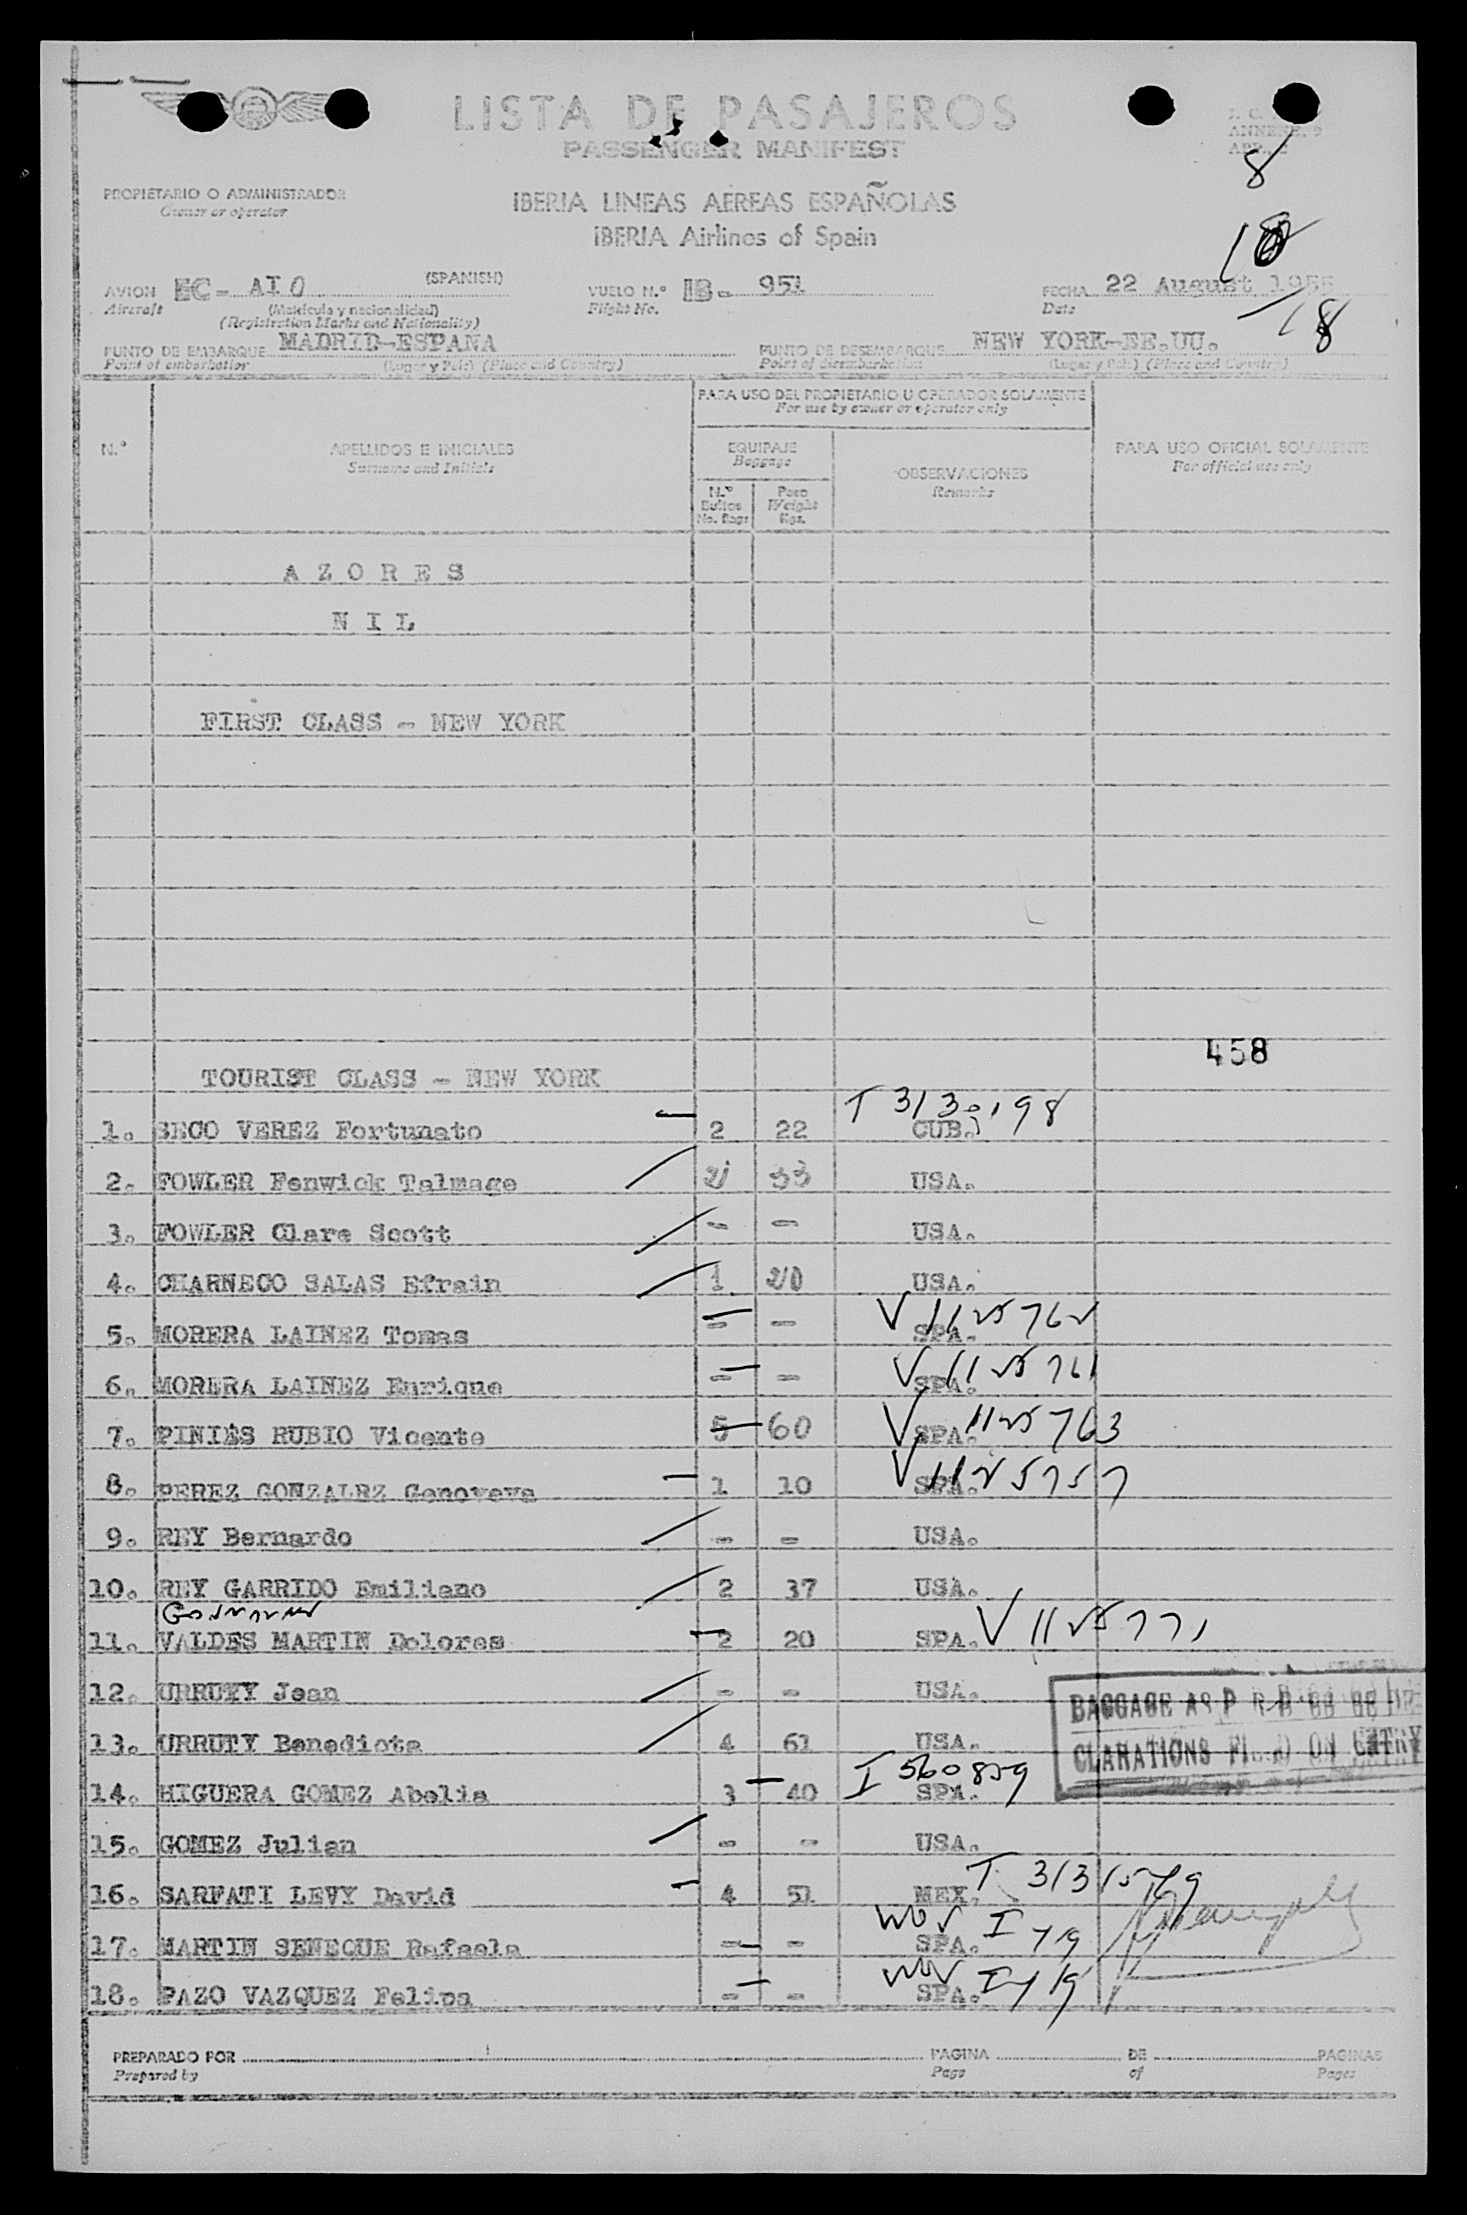 LISTA DE PASAJEROS
PASSENGER MANIFEST
PROPIETARIO O ADMINISTRADOR
Owner or operator
IBERIA LINEAS AÉREAS ESPAÑOLAS
IBERIA Airlines of Spain
8
18
AVION EC - AIO (SPANISH) VUELO N.º IB - 951 FECHA 22 August 195
Aircraft (Matrícula y nacionalidad) Flight No. Date
(Registration Marks and Nationality)
18
PUNTO DE EMBARQUE MADRID-ESPAÑA PUNTO DE DESEMBARQUE NEW YORK-EE.UU.
Point of embarkation (Lugar y País) (Place and Country) Point of disembarkation (Lugar y País) (Place and Country)
PARA USO DEL PROPIETARIO U OPERADOR SOLAMENTE
For use by owner or operator only
N.º APELLIDOS E INICIALES EQUIPAJE OBSERVACIONES PARA USO OFICIAL SOLAMENTE
Surname and Initials Baggage Remarks For official use only
N.º Bultos Peso
No. Bags Weight Kgs.
A Z O R E S
N I L
FIRST CLASS - NEW YORK
458
TOURIST CLASS - NEW YORK
T 3130198
1. SECO VEREZ Fortunato 2 22 CUB.
2. FOWLER Fenwick Talmage 2 33 USA.
3. FOWLER Clare Scott - - USA.
4. CHARNECO SALAS Efrain 1 20 USA.
5. MORERA LAINEZ Tomas - - SPA. V 1125762
6. MORERA LAINEZ Enrique - - SPA. V 1125761
7. PINIES RUBIO Vicente 5 60 SPA. V 1125763
8. PEREZ GONZALEZ Genoveva 1 10 SPA. V 1125757
9. REY Bernardo - - USA.
10. REY GARRIDO Emiliano 2 37 USA.
11. VALDES MARTIN Dolores 2 20 SPA. V 1125771
12. URRUTY Jean - - USA.
13. URRUTY Benedicta 4 61 USA.
BAGGAGE AS P
CLARATIONS FILED ON ENTRY
14. HIGUERA GOMEZ Abelia 3 40 SPA. I 560859
15. GOMEZ Julian - - USA.
16. SARFATI LEVY David 4 51 MEX. T 3131579
17. MARTIN SENEQUE Rafaela - - SPA.
18. PAZO VAZQUEZ Felipa - - SPA.
PREPARADO POR PAGINA DE PAGINAS
Prepared by Page of Pages